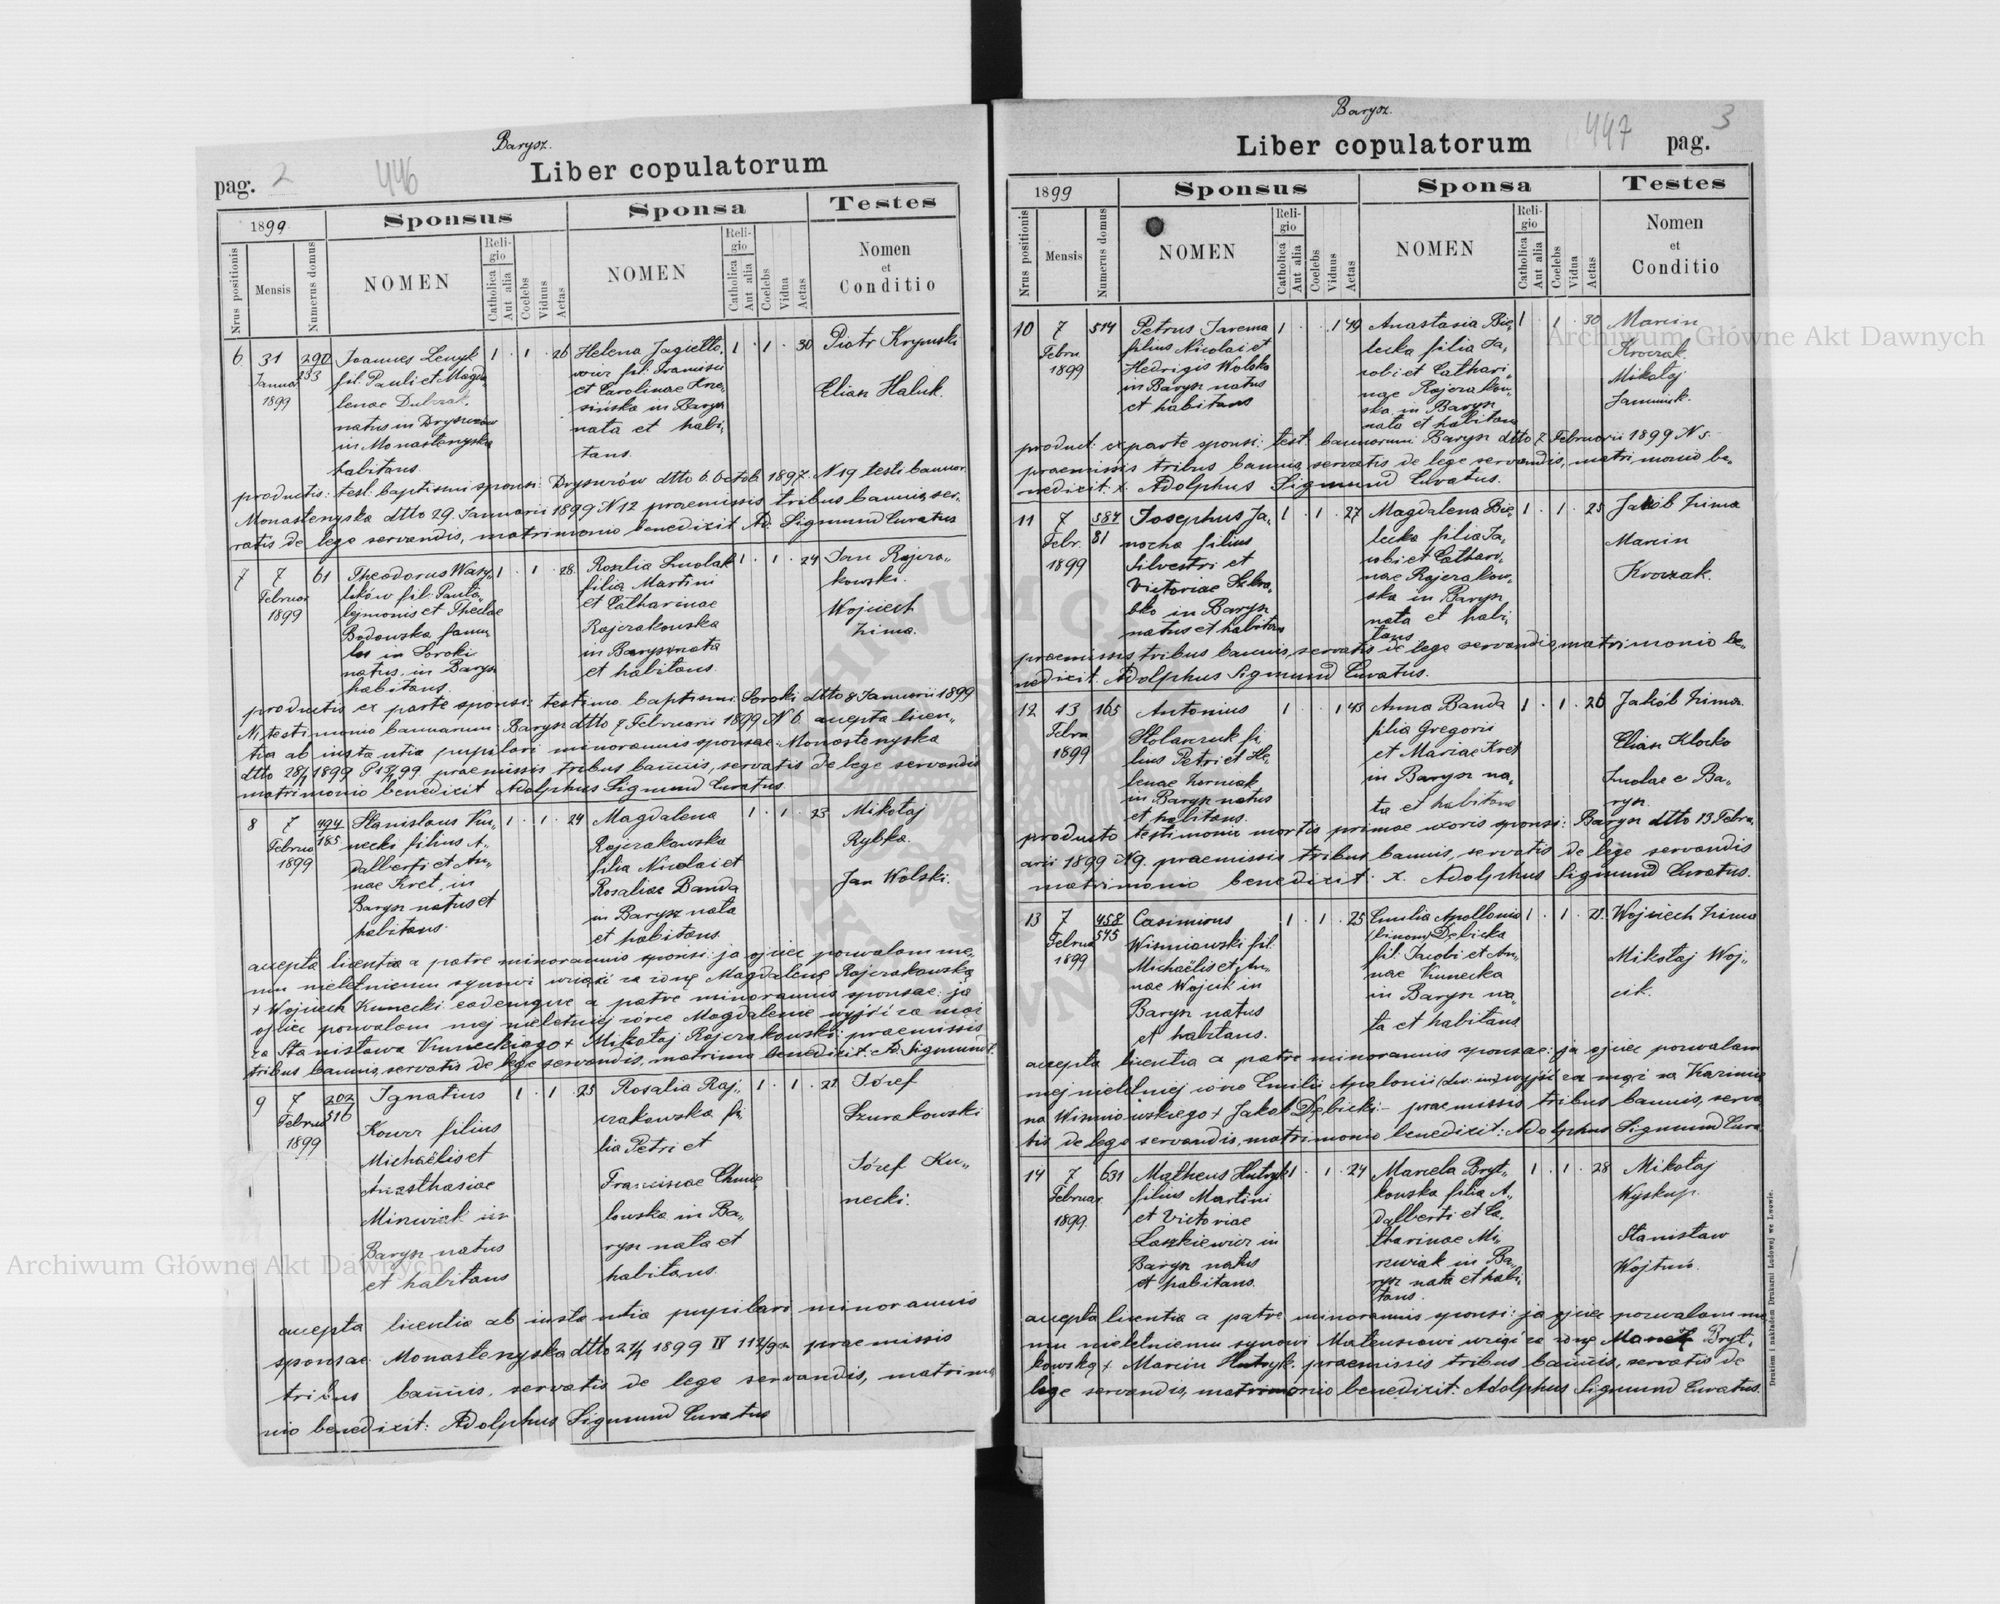 Barysz.
pag. 2
446
Liber copulatorum
1899
Sponsus
Sponsa
Testes
Nrus positionis
Mensis
Numerus domus
NOMEN
Religio
Catholica
Aut alia
Coelebs
Viduus
Aetas
NOMEN
Religio
Catholica
Aut alia
Coelebs
Vidua
Aetas
Nomen
et
Conditio
6 31 Januar 1899 290 233
Joannes Lenyk
fil. Pauli et Magda
lenae
natus in
in Monasterzyska
habitans.
1 · 1 · 26
Helena Jagiełło,
wicz fil. Francisci
et Carolinae
in Barysz
nata et habi,
tans.
1 · 1 · 30
Piotr Krynski
Elias Haluk.
productis: test. baptismi sponsi: dtto 6 Octob. 1897. N 19 testi. bannor.
Monasterzyska dtto 29 Januarii 1899 N 12 praemissis tribus bannis, ser,
vatis de lege servandis, matrimonio benedixit Ad. Sigmund Curatus
7 7 Februar 1899 61
Theodorus Wasy,
lków fil.
et Theclae
Bodowska
in Soroki
natus, in Barysz
habitans.
1 · 1 · 28
Rosalia Smolak
filia Martini
et Catharinae
Rajczakowska
in Barysz nata
et habitans.
1 · 1 · 24
Jan Rajcza,
kowski.
Wojciech
Zima.
productis ex parte sponsi: testimo. baptismi: Soroki dtto 8 Januarii 1899
N, testimonio bannorum: Barysz dtto 7 Februarii 1899 N 6. accepta licen,
tia ab instantia pupilari minorennis sponsae: Monasterzyska
dtto 28/1 1899 praemissis tribus bannis, servatis de lege servandis
matrimonio benedixit Adolphus Sigmund Curatus.
8 7 Februar 1899 494 185
Stanislaus Ku,
necki filius A,
dalberti et An,
nae Kret, in
Barysz natus et
habitans.
1 · 1 · 24
Magdalena
Rajczakowska
filia Nicolai et
Rosaliae Banda
in Barysz nata
et habitans.
1 · 1 · 23
Mikołaj
Rybka.
Jan Wolski.
accepta licentia a patre minorennis sponsi: ja ojciec pozwalam me,
mu nieletniemu synowi wziąść za żonę Magdalenę Rajczakowską
+ Wojciech Kunecki. eademque a patre minorennis sponsae: ja
ojciec pozwalam mej nieletniej córce Magdalenie wyjść za mąż
za Stanisława Kuneckiego + Mikołaj Rajczakowski: praemissis
tribus bannis, servatis de lege servandis, matrimo. benedixit: A. Sigmund.
9 7 Februar 1899 202 516
Ignatius
filius
Michaëlis et
Anasthasiae
Mizwiak in
Barysz natus
et habitans
1 · 1 · 25
Rosalia Raj,
czakowska fi,
lia Petri et
Franciscae Chmie,
lowska in Ba,
rysz nata et
habitans.
1 · 1 · 21
Józef
Szurakowski
Józef Ku,
necki.
accepta licentia ab instantia pupilari minorennis
sponsae. Monasterzyska dtto 27/1 1899 IV praemissis
tribus bannis, servatis de lege servandis, matrimo
nio benedixit: Adolphus Sigmund Curatus
Barysz.
Liber copulatorum
447
pag. 3
1899
Sponsus
Sponsa
Testes
Nrus positionis
Mensis
Numerus domus
NOMEN
Religio
Catholica
Aut alia
Coelebs
Viduus
Aetas
NOMEN
Religio
Catholica
Aut alia
Coelebs
Vidua
Aetas
Nomen
et
Conditio
10 7 Febru 1899 514
Petrus Jarema
filius Nicolai et
Hedvigis Wolska
in Barysz natus
et habitans
1 · · 1 49
Anastasia Bie,
lecka filia Ja,
cobi et Cathari,
nae Rajczakow,
ska in Barysz
nata et habitans
1 · 1 · 30
Marcin
Kroczak.
Mikołaj
product: ex parte sponsi: test. bannorum: Barysz dtto 7 Februarii 1899 N 5.
praemissis tribus bannis, servatis de lege servandis, matrimonio be,
nedixit: x. Adolphus Sigmund Curatus.
11 7 Febr. 1899 584 81
Josephus Ja,
nocha filius
Silvestri et
Victoriae
in Barysz
natus et habitans
1 · 1 · 27
Magdalena Bie,
lecka filia Ja,
cobi et Cathari,
nae Rajczakow,
ska in Barysz
nata et habi,
tans
1 · 1 · 25
Jakób Zima
Marcin
Kroczak.
praemissis tribus bannis, servatis de lege servandis, matrimonio be,
nedixit: Adolphus Sigmund Curatus.
12 13 Febru 1899 165
Antonius
Stolarczuk fi,
lius Petri et He,
lenae
in Barysz natus
et habitans.
1 · · 1 43
Anna Banda
filia Gregorii
et Mariae Kret
in Barysz na,
ta et habitans
1 · 1 · 26
Jakób Zima.
Elias Klocko
e Ba,
rysz.
producto testimonio mortis primae uxoris sponsi: Barysz dtto 13 Febru,
arii 1899 N 9. praemissis tribus bannis, servatis de lege servandis
matrimonio benedixit: x. Adolphus Sigmund Curatus.
13 7 Februar 1899 458 545
Casimirus
Wiśniowski fil.
Michaëlis et An,
nae Wójcik in
Barysz natus
et habitans.
1 · 1 · 25
Emilia Apollonia
(binom) Dębicka
fil. Jacobi et An,
nae Kunecka
in Barysz na,
ta et habitans.
1 · 1 · 21
Wojciech Zima
Mikołaj Woj,
cik.
accepta licentia a patre minorennis sponsae: ja ojciec pozwalam
mej nieletniej córce Emilii Apolonii (dw. im.) wyjść za mąż za Kazimie
na Wiśniowskiego + Jakób Dębicki. – praemissis tribus bannis, serva
tis de lege servandis, matrimonio benedixit: Adolphus Sigmund Cura
14 7 Februar 1899. 631
Matheus Hutryk
filius Martini
et Victoriae
Laszkiewicz in
Barysz natus
et habitans.
1 · 1 · 24
Marcela Bryt,
kowska filia A,
dalberti et Ca,
tharinae Mi,
zwiak in Ba,
rysz nata et habi,
tans.
1 · 1 · 28
Mikołaj
Wyskup.
Stanisław
accepta licentia a patre minorennis sponsi: ja ojciec pozwalam me
mu nieletniemu synowi Mateuszowi wziąść za żonę Bryt,
kowską + Marcin Hutryk. praemissis tribus bannis, servatis de
lege servandis, matrimonio benedixit: Adolphus Sigmund Curatus.
Drukiem i nakładem Drukarni Ludowej we Lwowie.
Archiwum Główne Akt Dawnych
Archiwum Główne Akt Dawnych